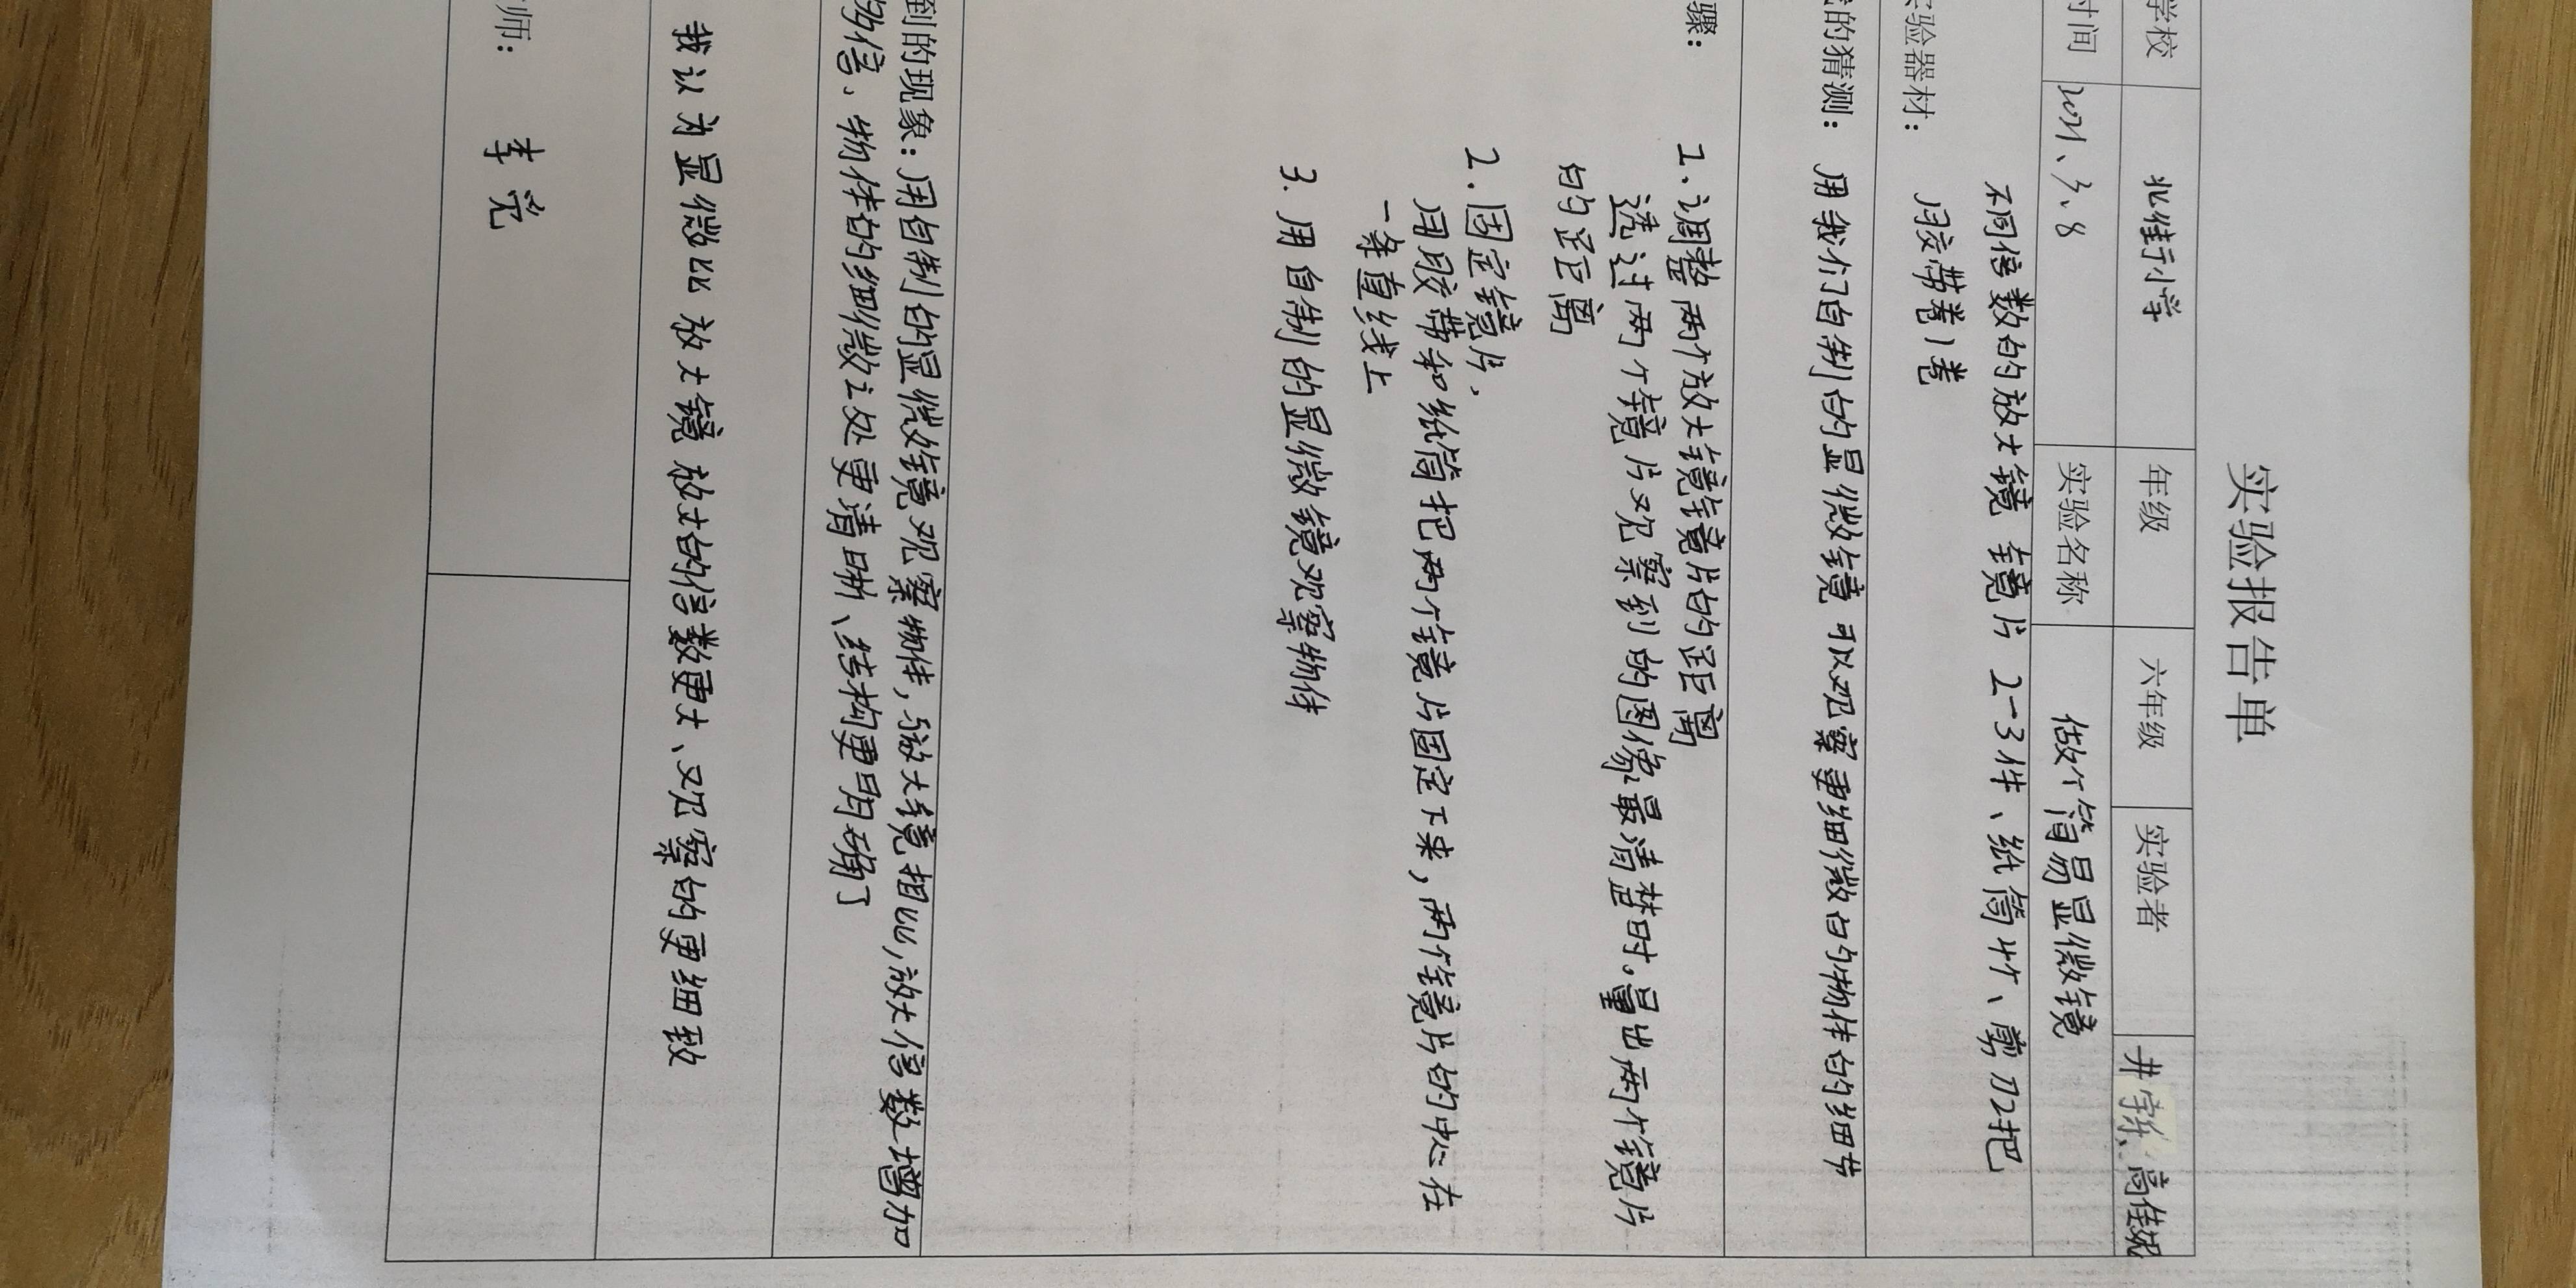 实验报告单
学校 北街小学 年级 六年级 实验者 井 高佳妮
时间 2021、3、8 实验名称 做个简易显微镜
验器材: 不同倍数的放大镜镜片2-3件、纸筒1个、剪刀2把
胶带卷1卷
的猜测: 用我们自制的显微镜可以观察更细微的物体的细节
骤: 1.调整两个放大镜镜片的距离
透过两个镜片观察到的图像最清楚时.量出两个镜片
的距离
2.固定镜片、
用胶带和纸筒把两个镜片固定下来,两个镜片的中心在
一条直线上
3.用自制的显微镜观察物体
到的现象:用自制的显微镜观察物体,与放大镜相比,放大倍数增加
多倍、物体的细微之处更清晰、结构更明确了
我认为显微比放大镜放大的倍数更大、观察的更细致
师: 李党